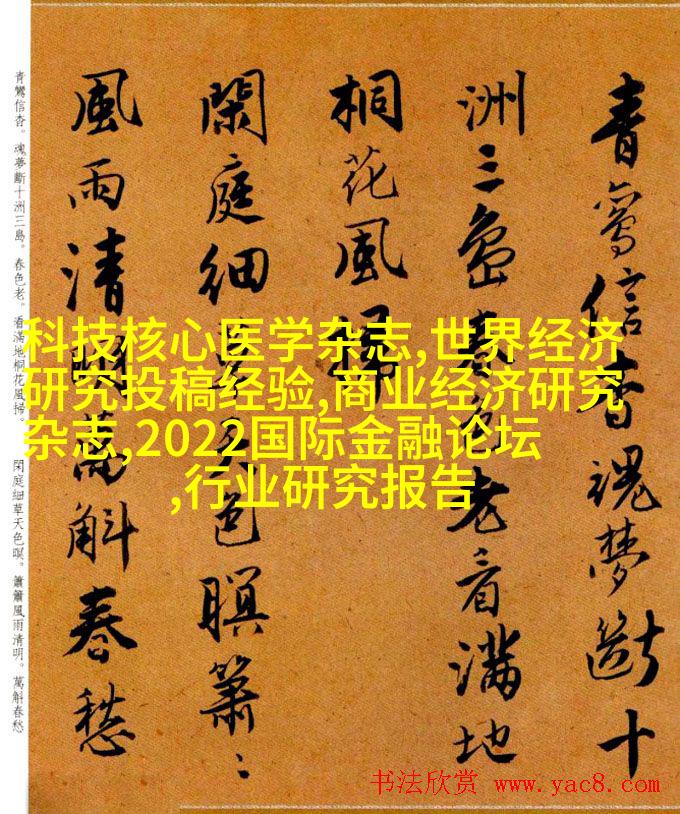 青鸞信杳魂夢斷十
洲三島春色老看滿地
桐花風掃
閑庭細草天色暝簫〻
風雨清明萬斛春愁
青鸞信杳。魂夢斷十洲三島。春色老。看滿地桐花風掃。 閑庭細草天色暝。簫簫風雨清明。萬斛春愁
科技核心医学杂志,世界经济
研究投稿经验,商业经济研究
杂志,2022国际金融论坛
,行业研究报告
书法欣赏 www.yac8.com